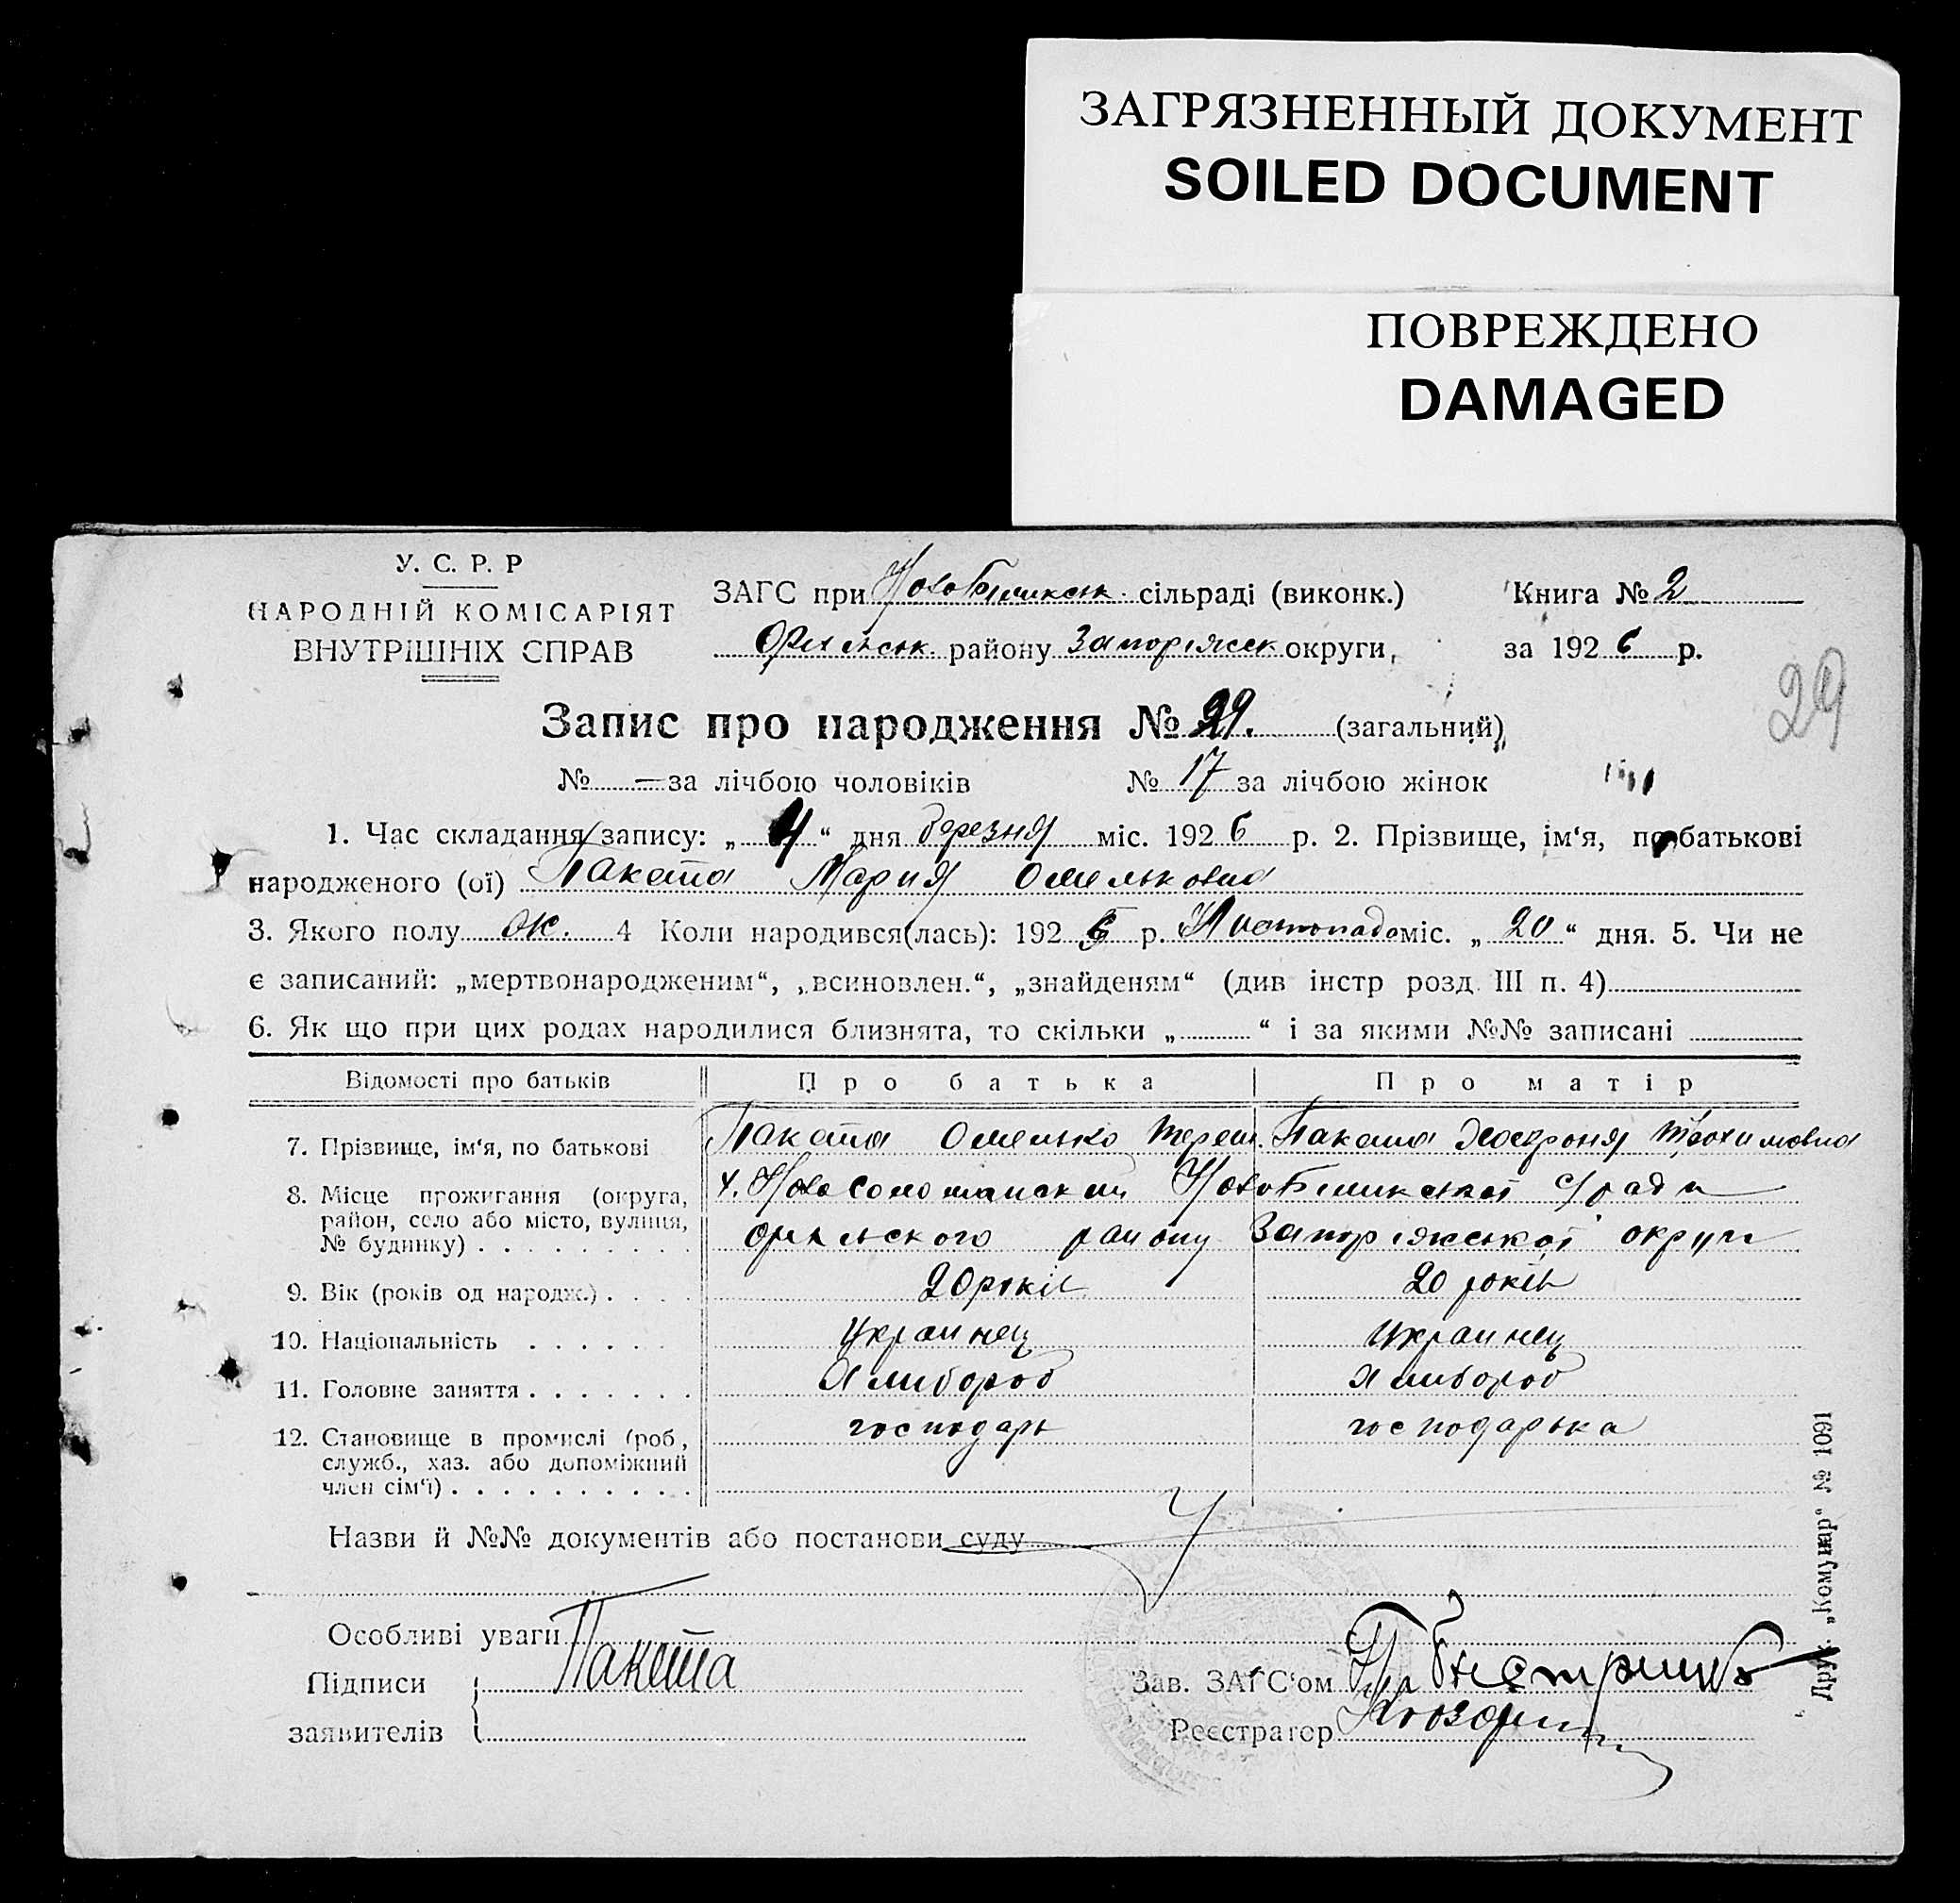 ЗАГРЯЗНЕННЫЙ ДОКУМЕНТ
SOILED DOCUMENT
ПОВРЕЖДЕНО
DAMAGED
У. С. Р. Р
НАРОДНІЙ КОМІСАРІЯТ
ВНУТРІШНІХ СПРАВ
ЗАГС при сільраді (виконк.)
району Запоріжськ округи,
Книга № 2
за 192 6 р.
29
Запис про народження № 29. (загальний)
№ — за лічбою чоловіків № 17 за лічбою жінок
1. Час складання запису: „ 4 “ дня березня міс. 192 6 р. 2. Прізвище, ім‘я, по батькові
народженого (ої) Пакета Мария Омельковна
3. Якого полу ж. 4 Коли народився(лась): 192 р. Листопада міс. „ 20 “ дня. 5. Чи не
є записаний: „мертвонародженим“, „всиновлен.“, „знайденям“ (див інстр розд. III п. 4)
6. Як що при цих родах народилися близнята, то скільки „ “ і за якими №№ записані
Відомості про батьків Про батька Про матір
7. Прізвище, ім‘я, по батькові Пакета Омелько Терешк. Пакета Явдоха Трохимовна
8. Місце прожигання (округа,
район, село або місто, вулиця,
№ будинку) району Запоріжської округи
9. Вік (років од народж.) 20 років 20 років
10. Національність Украинец Украинец
11. Головне заняття Хлибороб Хлибороб
12. Становище в промислі (роб, господарь господарька
служб., хаз. або допоміжний
член сім‘ї)
Назви й №№ документів або постанови суду
Особливі уваги
Підписи Пакета
заявителів
Зав. ЗАГС‘ом
Реєстратор
Друк. „Комунар“ № 1091